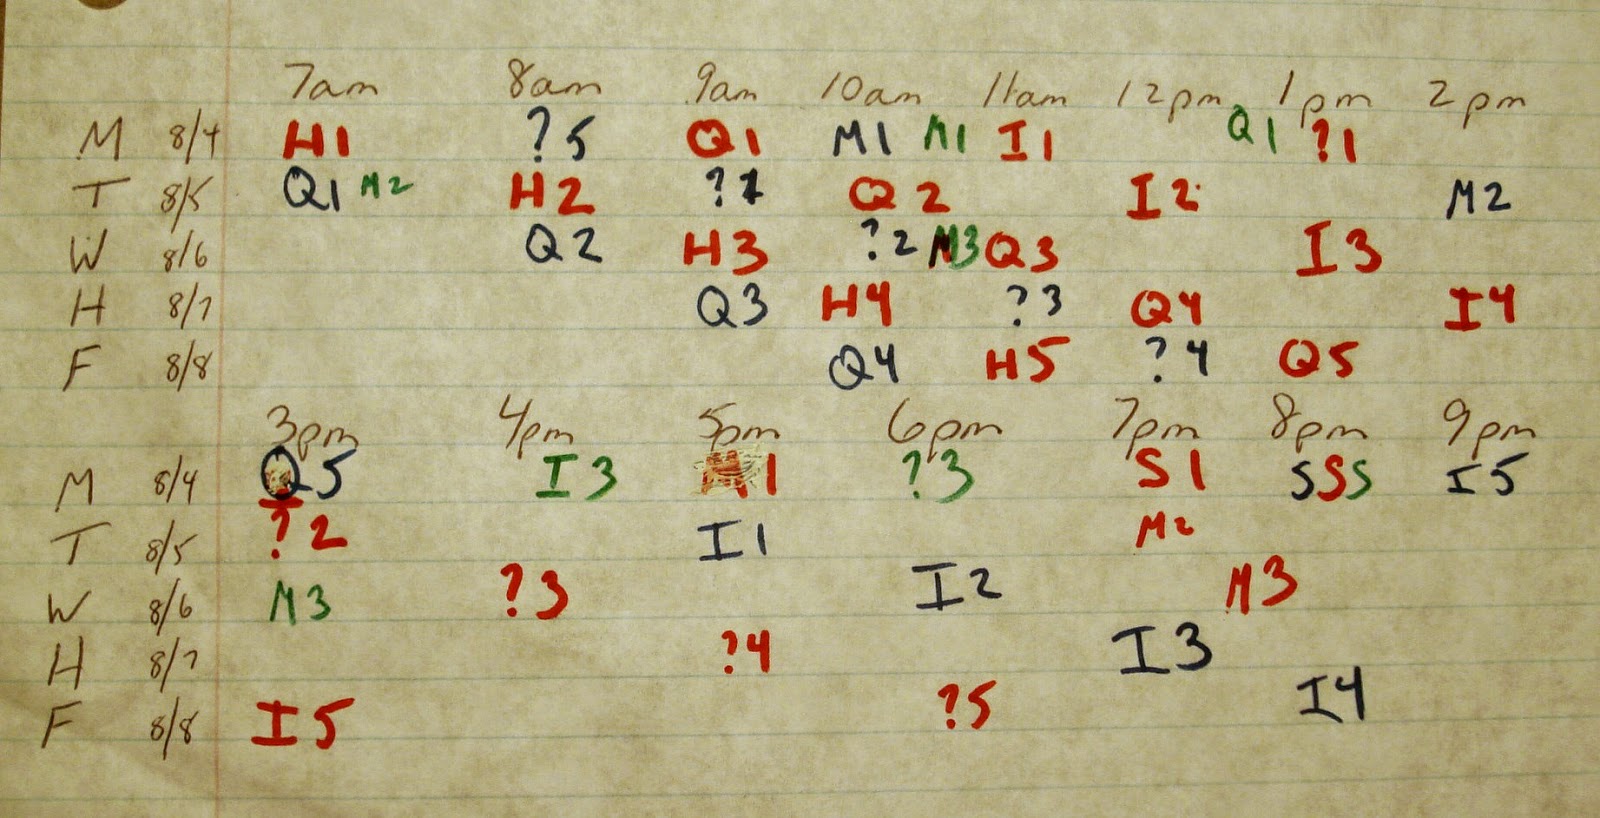 7am 8am 9am 10am 11am 12pm 1pm 2pm
M 8/4 H1 ?5 Q1 M1 M1 I1 Q1 ?1
T 8/5 Q1 M2 H2 ?1 Q2 I2 M2
W 8/6 Q2 H3 ?2 M3 Q3 I3
H 8/7 Q3 H4 ?3 Q4 I4
F 8/8 Q4 H5 ?4 Q5
3pm 4pm 5pm 6pm 7pm 8pm 9pm
M 8/4 Q5 I3 ?3 S1 SSS I5
T 8/5 ?2 I1 M2
W 8/6 M3 ?3 I2 M3
H 8/7 ?4 I3
F 8/8 I5 ?5 I4